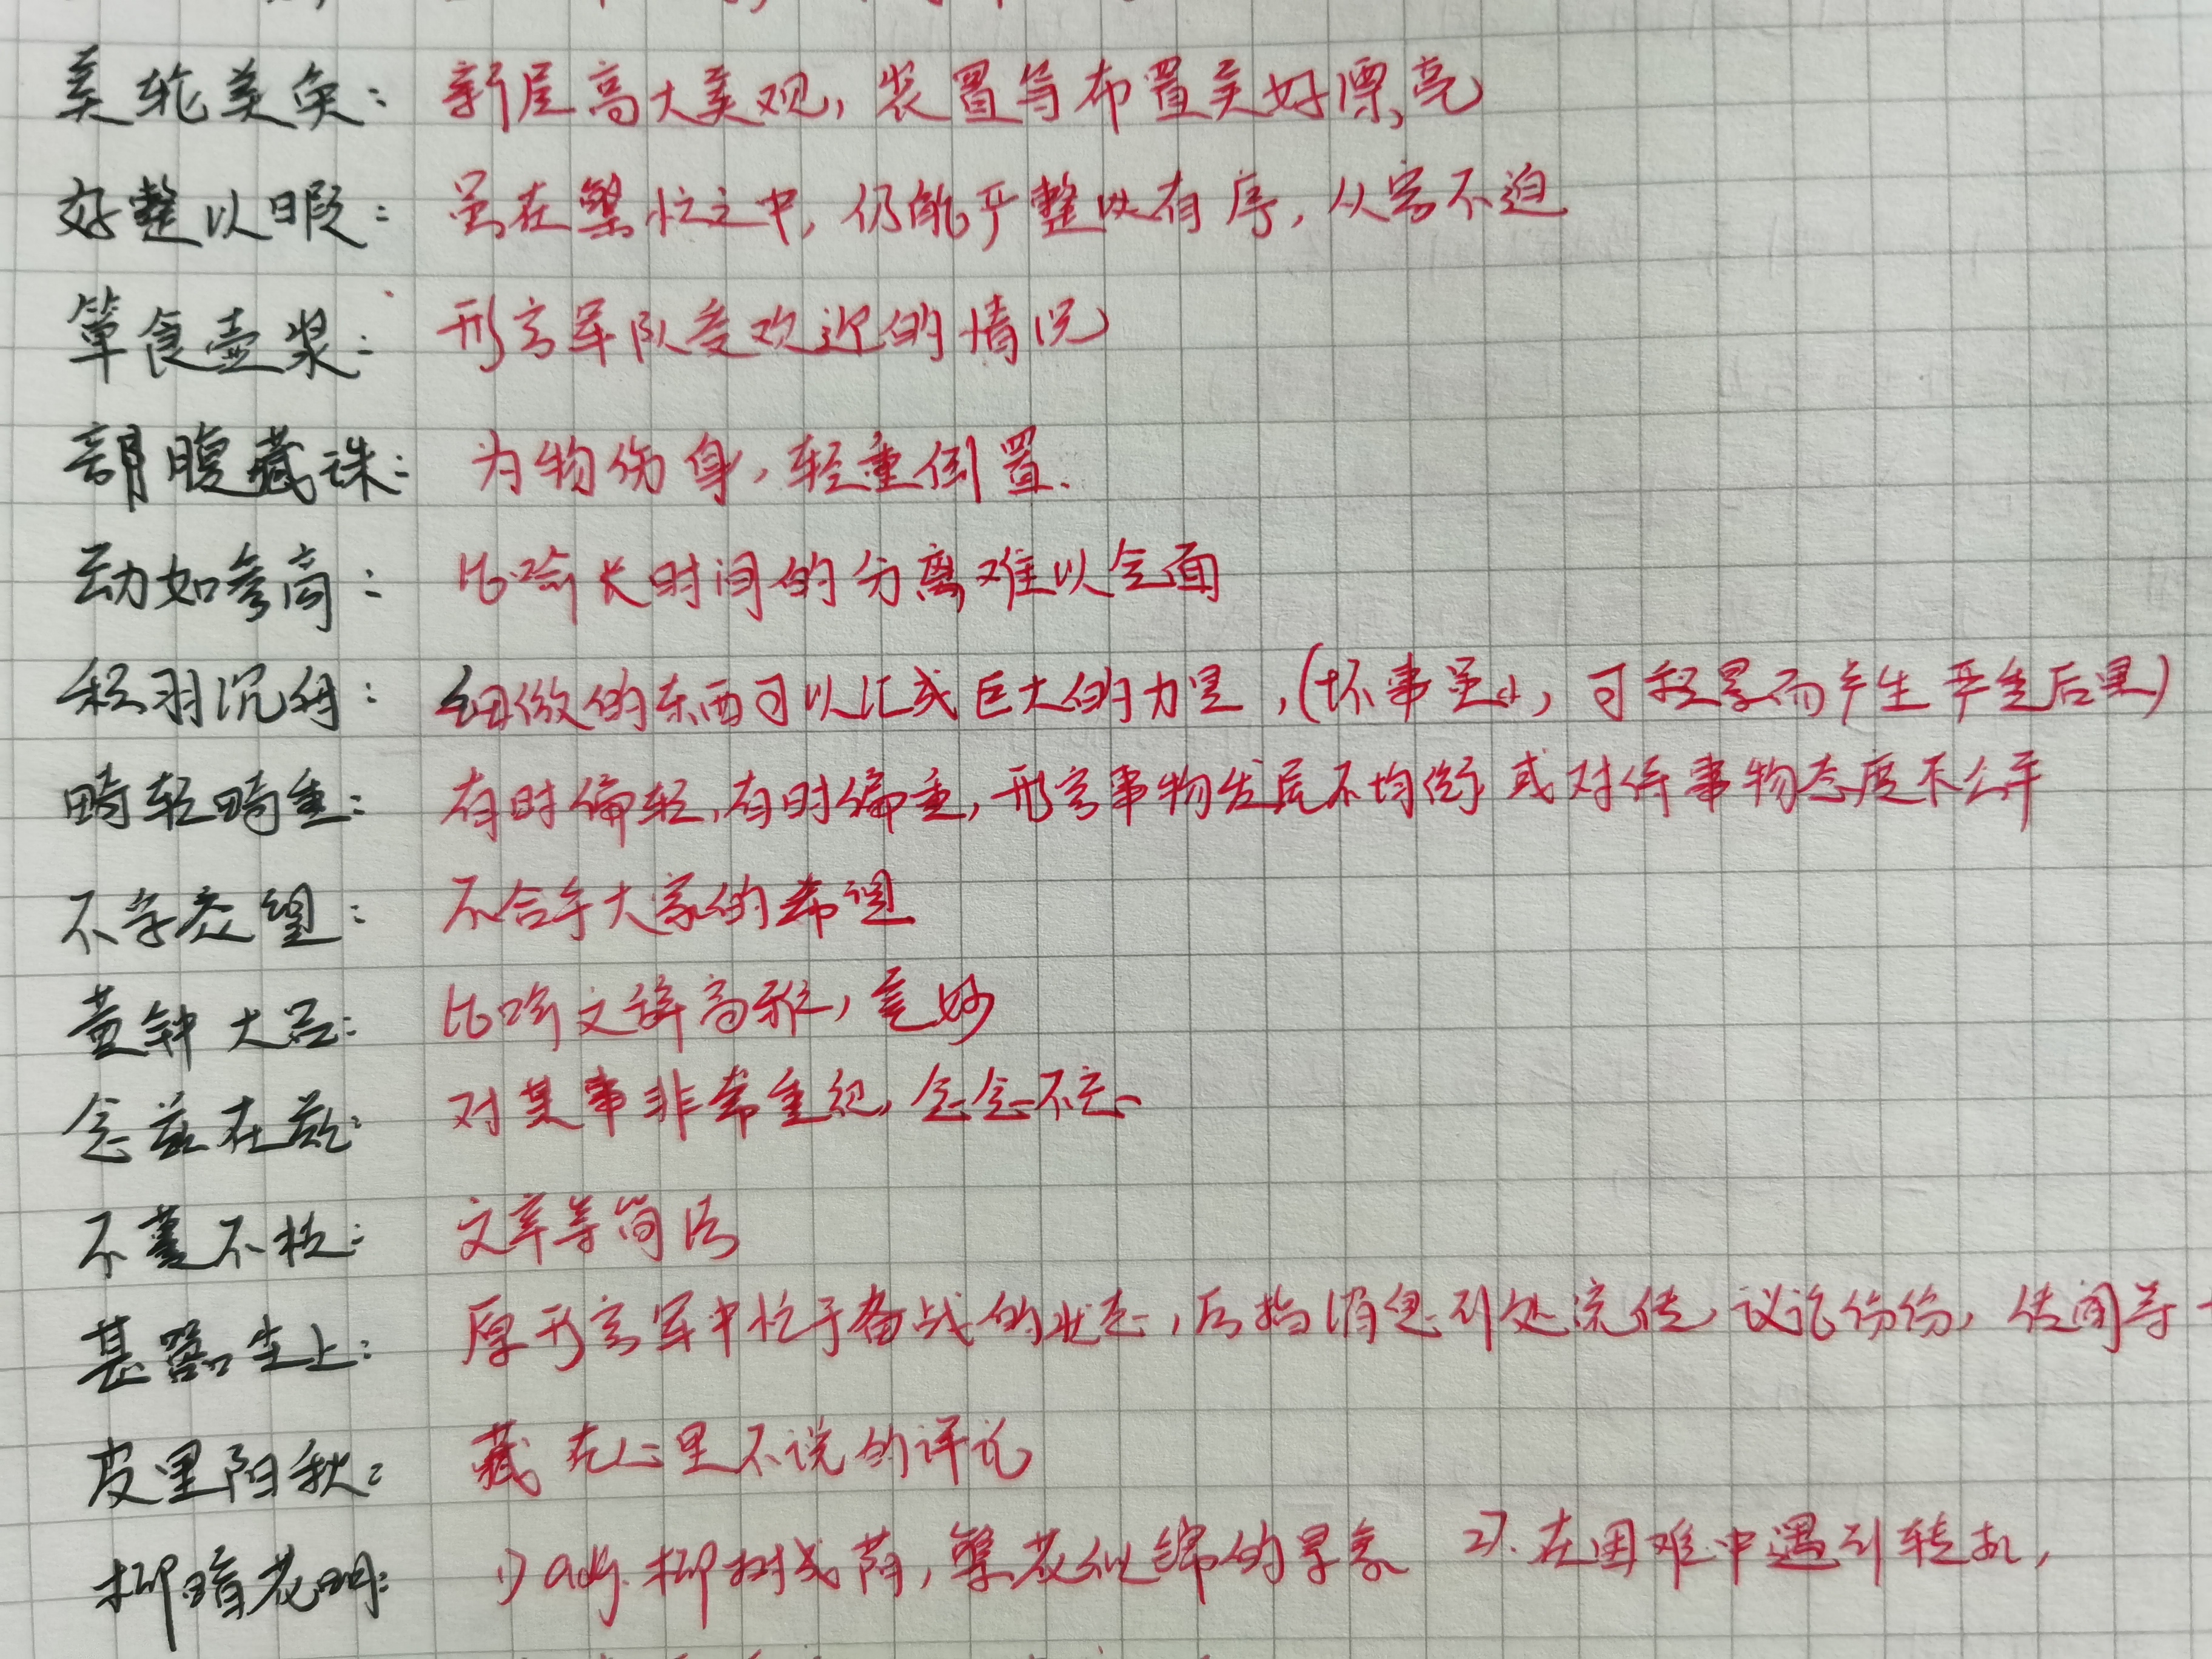 美轮美奂：新屋高大美观，装置等布置美好漂亮
好整以暇：虽在繁忙之中，仍能严整以有序，从容不迫
箪食壶浆：形容军队受欢迎的情况
剖腹藏珠：为物伤身，轻重倒置.
动如参商：比喻长时间的分离难以会面
积羽沉舟：细微的东西可以汇成巨大的力量，(坏事虽小，可积累而产生严重后果)
畸轻畸重：有时偏轻，有时偏重，形容事物发展不均衡 或对待事物态度不公平
不孚众望：不合乎大家的希望
黄钟大吕：比喻文辞高雅，美妙
念兹在兹：对某事非常重视，念念不忘
不蔓不枝：文章等简洁
甚嚣尘上：原形容军中忙于备战的状态，后指消息到处流传 议论纷纷，传闻等
皮里阳秋：藏在心里不说的评论
柳暗花明：1) adj. 柳树成荫，繁花似锦的景象 2). 在困难中遇到转机，